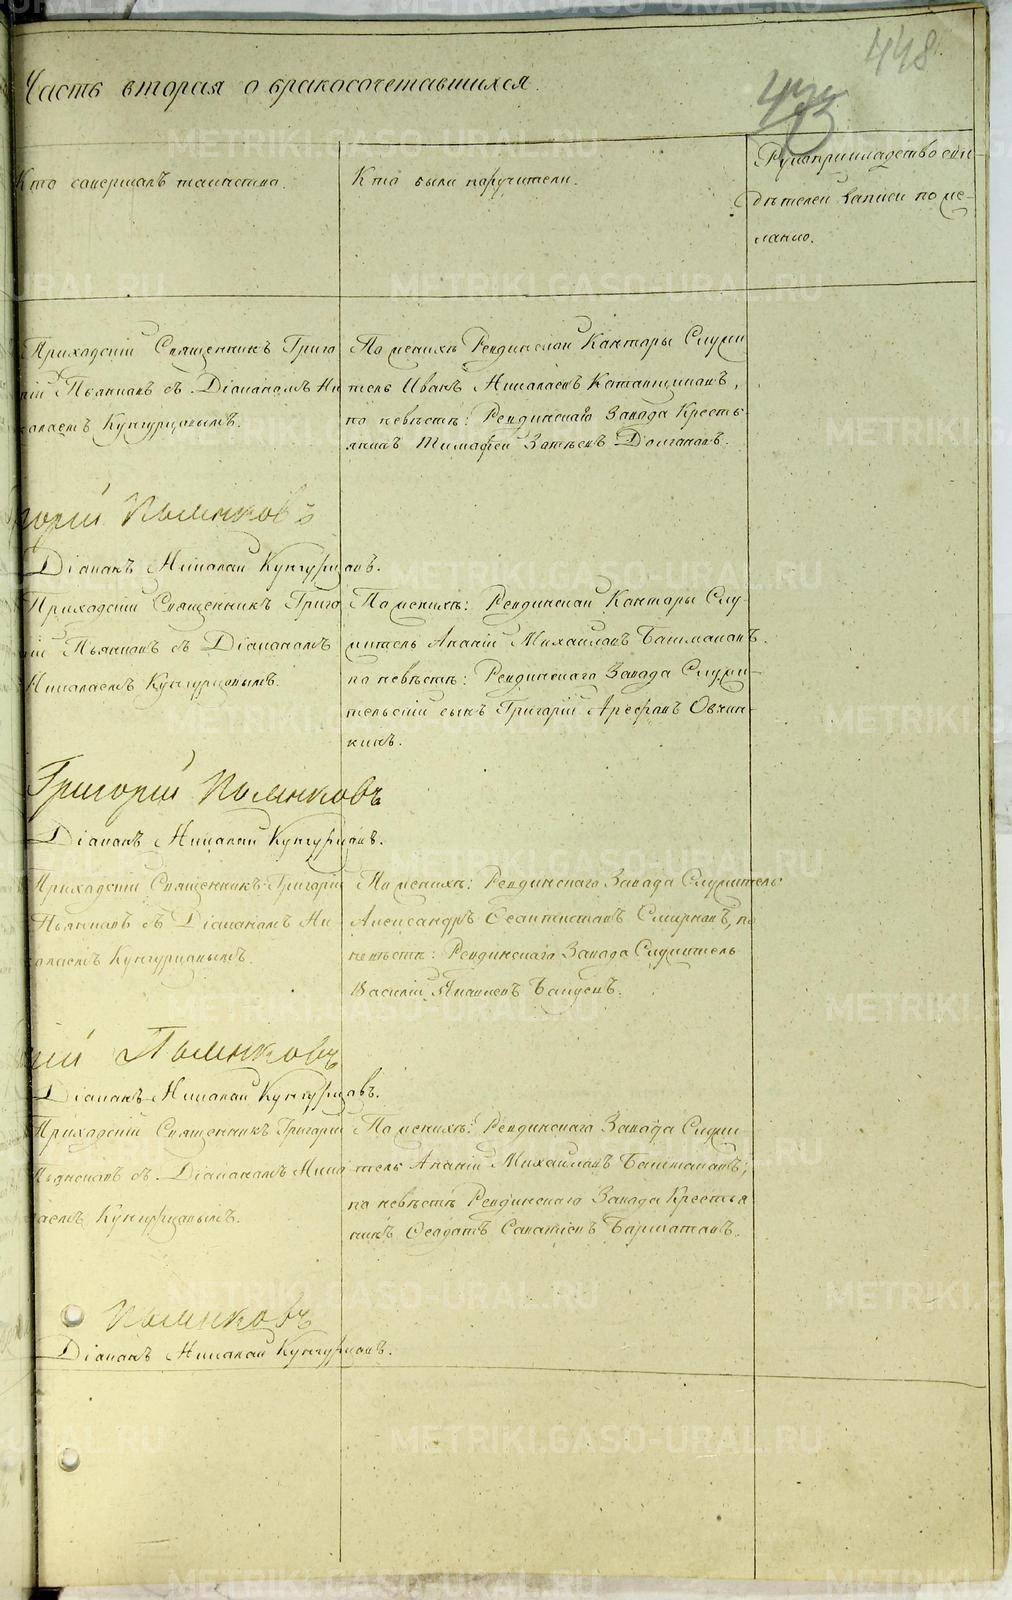 448
Часть вторая о бракосочетавшихся.
Кто совершалъ таинство.
Кто были поручители.
Рукоприкладство сви-
дѣтелей записи по же-
ланію.
Приходскій Священникъ Григо
рій Пьянковъ съ Діакономъ Ни
колаемъ Кунгурцовымъ.
По женихѣ Ревдинской Канторы Служи
тель Иванъ Николаевъ
по невѣстѣ: Ревдинскаго Завода Кресть
янинъ Тимофей Долгановъ.
горій Пьянковъ
Діаконъ Николай Кунгурцовъ.
Приходскій Священникъ Григо
рій Пьянковъ съ Діакономъ
Николаемъ Кунгурцовымъ.
По женихѣ: Ревдинской Канторы Слу-
житель Ананій Михайловъ Башмаковъ.
по невѣстѣ: Ревдинскаго Завода Служи-
тельскій сынъ Григорій Арефовъ Овчин-
кинъ.
Григорій Пьянковъ
Діаконъ Николай Кунгурцовъ.
Приходскій Священникъ Григорій
Пьянковъ съ Діакономъ Ни-
колаемъ Кунгурцовымъ.
По женихѣ: Ревдинскаго Завода Служитель
Александръ Смирновъ, по
невѣстѣ: Ревдинскаго Завода Служитель
Василій
рій Пьянковъ
Діаконъ Николай Кунгурцовъ.
Приходскій Священникъ Григорій
Пьянковъ съ Діакономъ Нико
лаемъ Кунгурцовымъ.
По женихѣ: Ревдинскаго Завода Служи-
тель Ананій Михайловъ Башмаковъ;
по невѣстѣ Ревдинскаго Завода Крестья
нинъ
Пьянковъ
Діаконъ Николай Кунгурцовъ.
METRIKI.GASO-URAL.RU